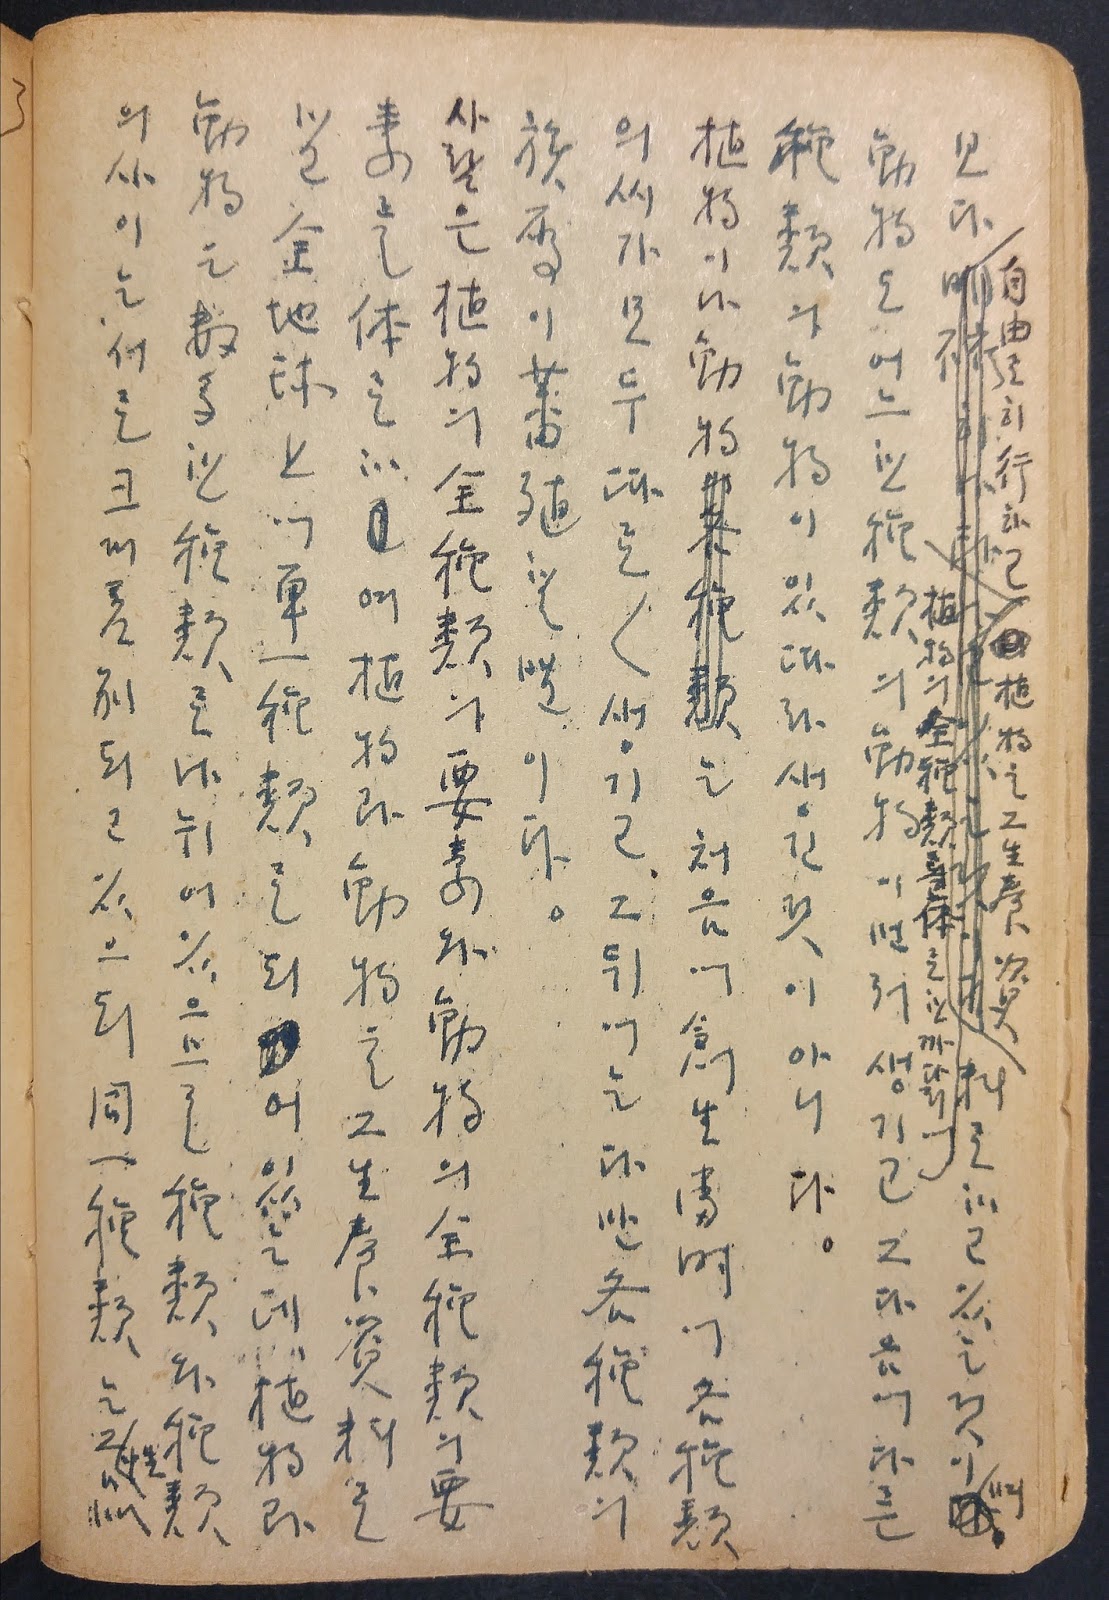 自由로히 行하고 植物는 그 生養資
보다 料로 하고 있는 것이며
植物의 全種類를 体로 한 까닭에
動物도 어느 한 種類의 動物이 먼저 생기고 그 다음에 다른
種類의 動物이 있따라 생긴 것이 아니다。
植物이나 動物는 처음에 創生當時에 各種類
의 씨가 모두 따로 〱 생기고 그 뒤에는 다만 各種類의
族屬이 蕃殖할 뿐이다。
사람은 植物의 全種類의 要素와 動物의 全種類의 要
素를 体로 하여 植物과 動物을 그 生養資料로
할 全地球上에 單一種類로 되어 있는데 植物과
動物는 數多한 種類로 나뉘어 있으므로 種類와 種類
의 사이는 서로 크게 差別되고 있으되 同一種類는 그